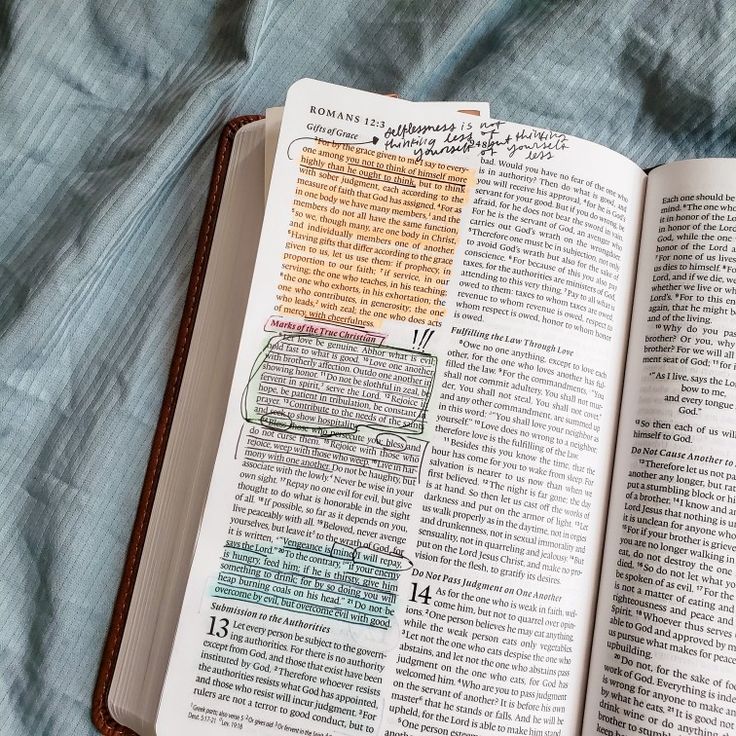 ROMANS 12:3
selflessness is not
thinking less of
yourself but thinking
of yourself
less
248
Gifts of Grace
³For by the grace given to me I say to every-
one among you not to think of himself more
highly than he ought to think, but to think
with sober judgment, each according to the
measure of faith that God has assigned. ⁴For as
in one body we have many members, and the
members do not all have the same function,
⁵so we, though many, are one body in Christ,
and individually members one of another.
⁶Having gifts that differ according to the grace
given to us, let us use them: if prophecy, in
proportion to our faith; ⁷if service, in our
serving; the one who teaches, in his teaching;
⁸the one who exhorts, in his exhortation; the
one who contributes, in generosity; the one
who leads, with zeal; the one who does acts
of mercy, with cheerfulness.
Marks of the True Christian
!!!
Let love be genuine. Abhor what is evil;
hold fast to what is good. ¹⁰Love one another
with brotherly affection. Outdo one another in
showing honor. ¹¹Do not be slothful in zeal, be
fervent in spirit, serve the Lord. ¹²Rejoice in
hope, be patient in tribulation, be constant in
prayer. ¹³Contribute to the needs of the saints
and seek to show hospitality.
Bless those who persecute you; bless and
do not curse them. ¹⁵Rejoice with those who
rejoice, weep with those who weep. ¹⁶Live in har-
mony with one another. Do not be haughty, but
associate with the lowly. Never be wise in your
own sight. ¹⁷Repay no one evil for evil, but give
thought to do what is honorable in the sight
of all. ¹⁸If possible, so far as it depends on you,
live peaceably with all. ¹⁹Beloved, never avenge
yourselves, but leave it to the wrath of God, for
it is written, “Vengeance is mine, I will repay,
says the Lord.” ²⁰To the contrary, “if your enemy
is hungry, feed him; if he is thirsty, give him
something to drink; for by so doing you will
heap burning coals on his head.” ²¹Do not be
overcome by evil, but overcome evil with good.
Submission to the Authorities
13 Let every person be subject to the govern-
ing authorities. For there is no authority
except from God, and those that exist have been
instituted by God. ²Therefore whoever resists
the authorities resists what God has appointed,
and those who resist will incur judgment. ³For
rulers are not a terror to good conduct, but to
bad. Would you have no fear of the one who
is in authority? Then do what is good, and
you will receive his approval, ⁴for he is God's
servant for your good. But if you do wrong, be
afraid, for he does not bear the sword in vain.
For he is the servant of God, an avenger who
carries out God's wrath on the wrongdoer.
⁵Therefore one must be in subjection, not only
to avoid God's wrath but also for the sake of
conscience. ⁶For because of this you also pay
taxes, for the authorities are ministers of God,
attending to this very thing. ⁷Pay to all what is
owed to them: taxes to whom taxes are owed,
revenue to whom revenue is owed, respect to
whom respect is owed, honor to whom honor
is owed.
Fulfilling the Law Through Love
⁸Owe no one anything, except to love each
other, for the one who loves another has ful-
filled the law. ⁹For the commandments, “You
shall not commit adultery, You shall not mur-
der, You shall not steal, You shall not covet,”
and any other commandment, are summed up
in this word: “You shall love your neighbor as
yourself.” ¹⁰Love does no wrong to a neighbor;
therefore love is the fulfilling of the law.
¹¹Besides this you know the time, that the
hour has come for you to wake from sleep. For
salvation is nearer to us now than when we
first believed. ¹²The night is far gone; the day
is at hand. So then let us cast off the works of
darkness and put on the armor of light. ¹³Let
us walk properly as in the daytime, not in orgies
and drunkenness, not in sexual immorality and
sensuality, not in quarreling and jealousy. ¹⁴But
put on the Lord Jesus Christ, and make no pro-
vision for the flesh, to gratify its desires.
Do Not Pass Judgment on One Another
14 As for the one who is weak in faith, wel-
come him, but not to quarrel over opin-
ions. ²One person believes he may eat anything,
while the weak person eats only vegetables.
³Let not the one who eats despise the one who
abstains, and let not the one who abstains pass
judgment on the one who eats, for God has
welcomed him. ⁴Who are you to pass judgment
on the servant of another? It is before his own
master that he stands or falls. And he will be
upheld, for the Lord is able to make him stand.
⁵One person esteems
Each one should be
mind. ⁶The one who
it in honor of the Lord
God, while the one
in honor of the Lord
⁷For none of us lives
us dies to himself. ⁸For
Lord, and if we die, we
whether we live or wh
Lord's. ⁹For to this en
again, that he might b
and of the living.
¹⁰Why do you pass
brother? Or you, why
brother? For we will all
ment seat of God; ¹¹for
“As I live, says the Lord
bow to me,
and every tongue
God.”
¹²So then each of us wi
himself to God.
Do Not Cause Another to
¹³Therefore let us not pa
another any longer, but rat
put a stumbling block or hi
of a brother. ¹⁴I know and a
Lord Jesus that nothing is u
it is unclean for anyone wh
¹⁵For if your brother is griev
you are no longer walking in
eat, do not destroy the one
died. ¹⁶So do not let what yo
be spoken of as evil. ¹⁷For the
is not a matter of eating and
righteousness and peace and
Spirit. ¹⁸Whoever thus serves C
able to God and approved by m
us pursue what makes for peace
upbuilding.
²⁰Do not, for the sake of foo
work of God. Everything is inde
is wrong for anyone to make an
by what he eats. ²¹It is good not
drink wine or do anything tha
brother to stumble.